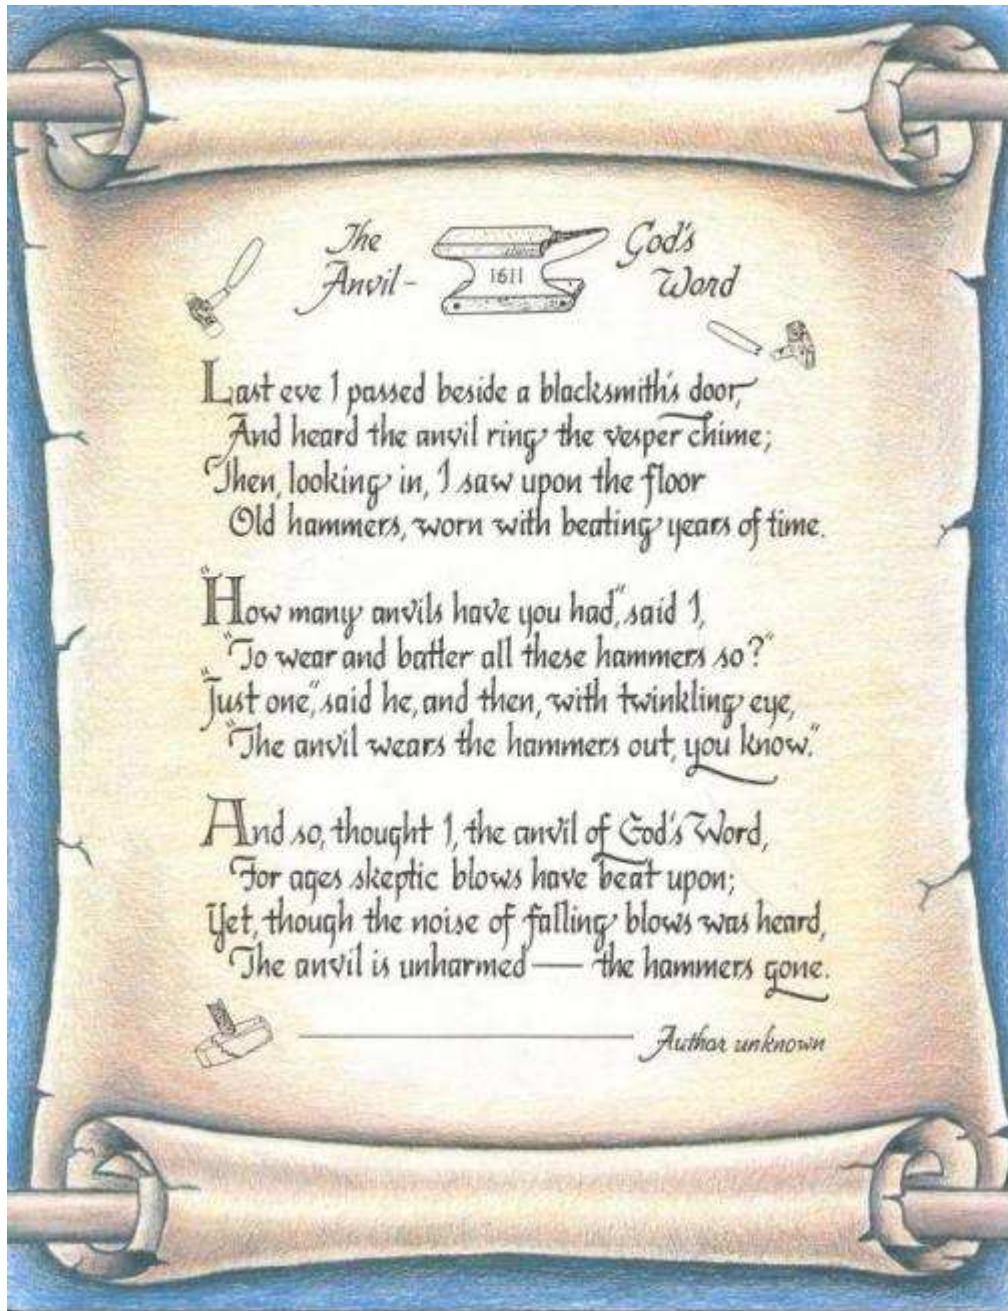 The Anvil - God's Word
1611
Last eve I passed beside a blacksmith's door,
And heard the anvil ring the vesper chime;
Then, looking in, I saw upon the floor
Old hammers, worn with beating years of time.
"How many anvils have you had," said I,
"To wear and batter all these hammers so?"
"Just one," said he, and then, with twinkling eye,
"The anvil wears the hammers out, you know."
And so, thought I, the anvil of God's Word,
For ages skeptic blows have beat upon;
Yet, though the noise of falling blows was heard,
The anvil is unharmed — the hammers gone.
Author unknown